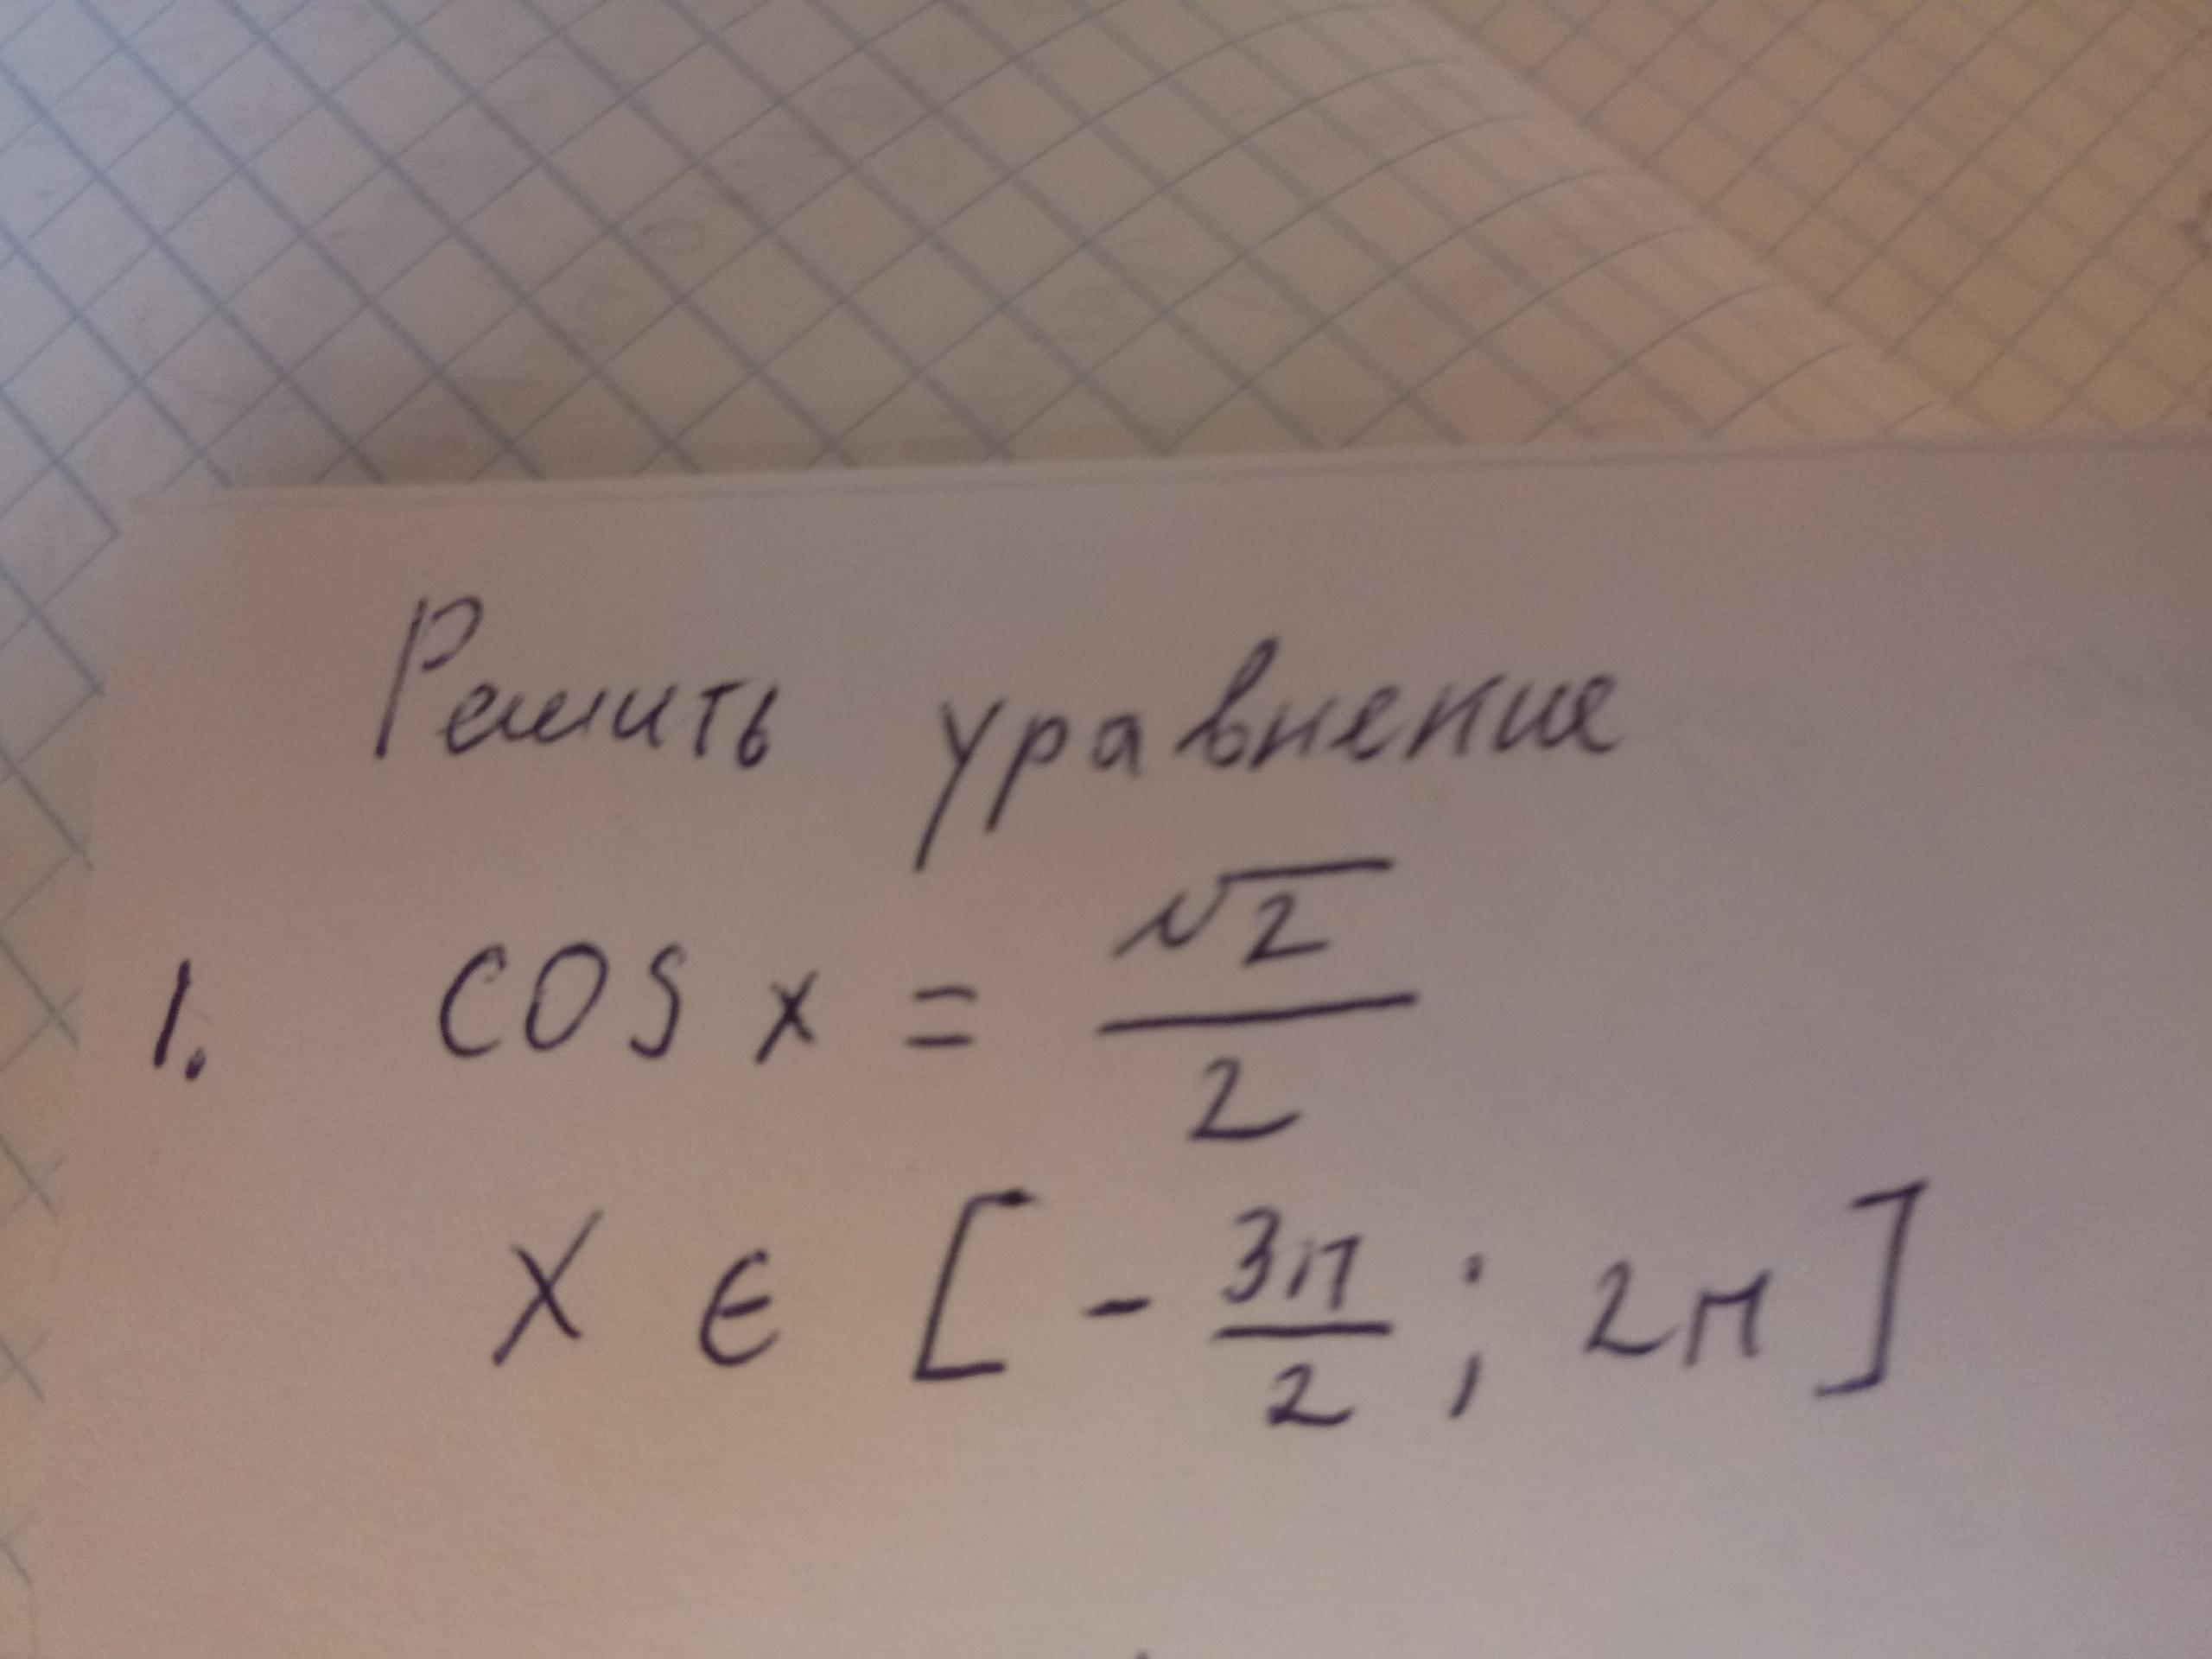 Решить уравнение
1. cos x = √2/2
x ∈ [-3π/2; 2π]